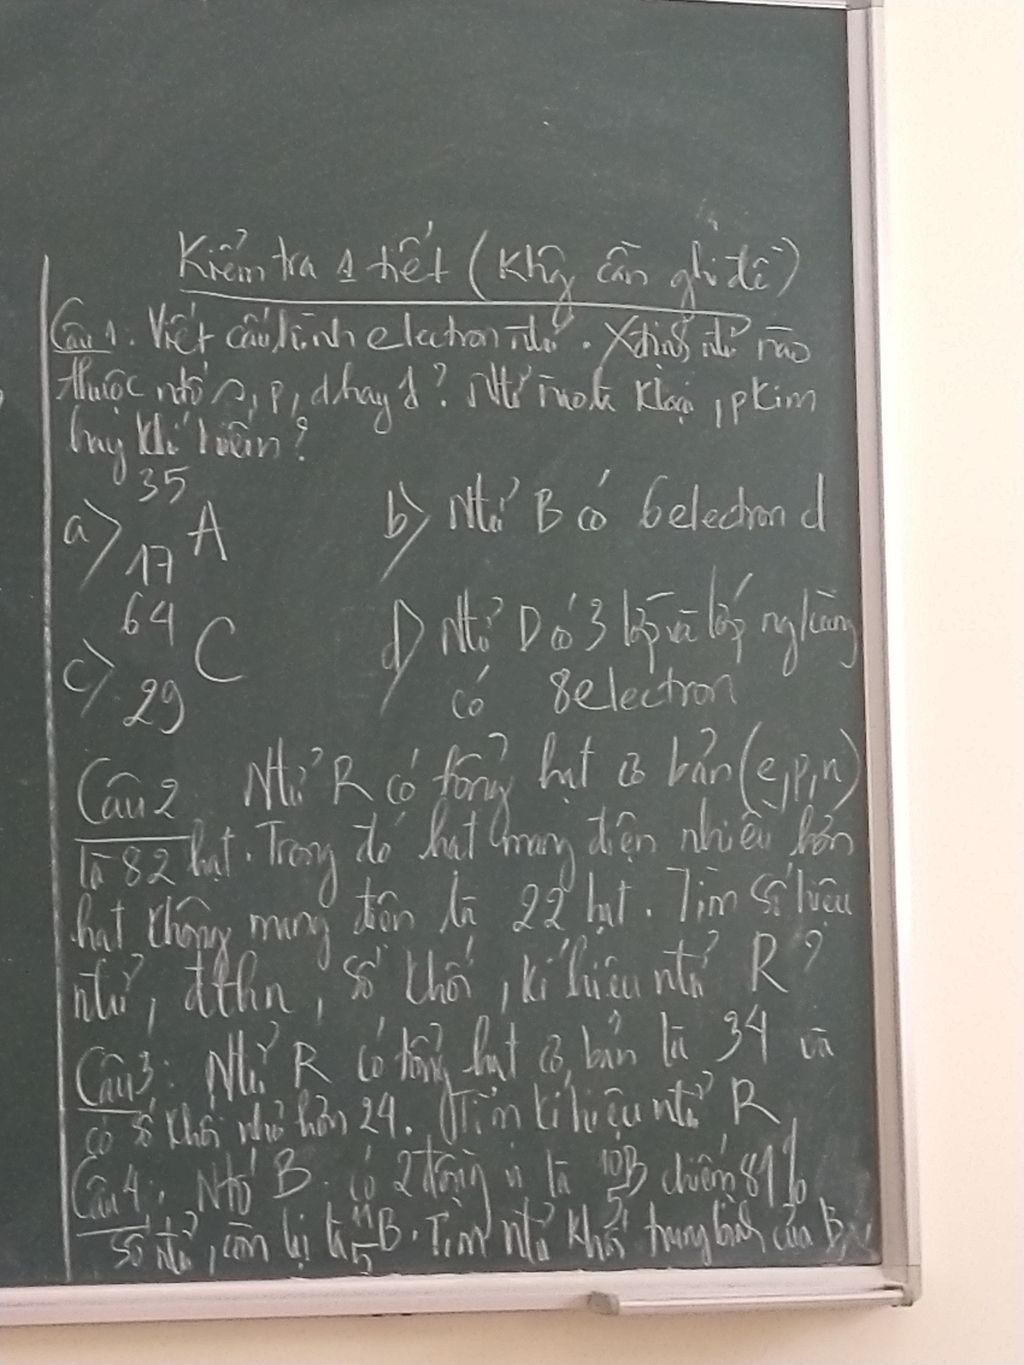 Kiểm tra 1 tiết (Khg cần ghi đề)
Câu 1: Viết cấu hình electron ntử. Xđịnh ntử nào
thuộc ntố s, p, d hay f? Ntử nào là kloại, pkim
hay khí hiếm?
a) 35 17 A b) Ntử B có 6 electron d
c) 64 29 C d) Ntử D có 3 lớp và lớp ngcùng
có 8 electron
Câu 2 Ntử R có tổng hạt cơ bản (e, p, n)
là 82 hạt. Trong đó hạt mang điện nhiều hơn
hạt không mang điện là 22 hạt. Tìm số hiệu
ntử, đthn, số khối, kí hiệu ntử R?
Câu 3: Ntử R có tổng hạt cơ bản là 34 và
có số khối nhỏ hơn 24. Tìm kí hiệu ntử R
Câu 4: Ntố B có 2 đồng vị là 10 5 B chiếm 81%
số ntử, còn lại là 11 5 B. Tìm ntử khối trung bình của B